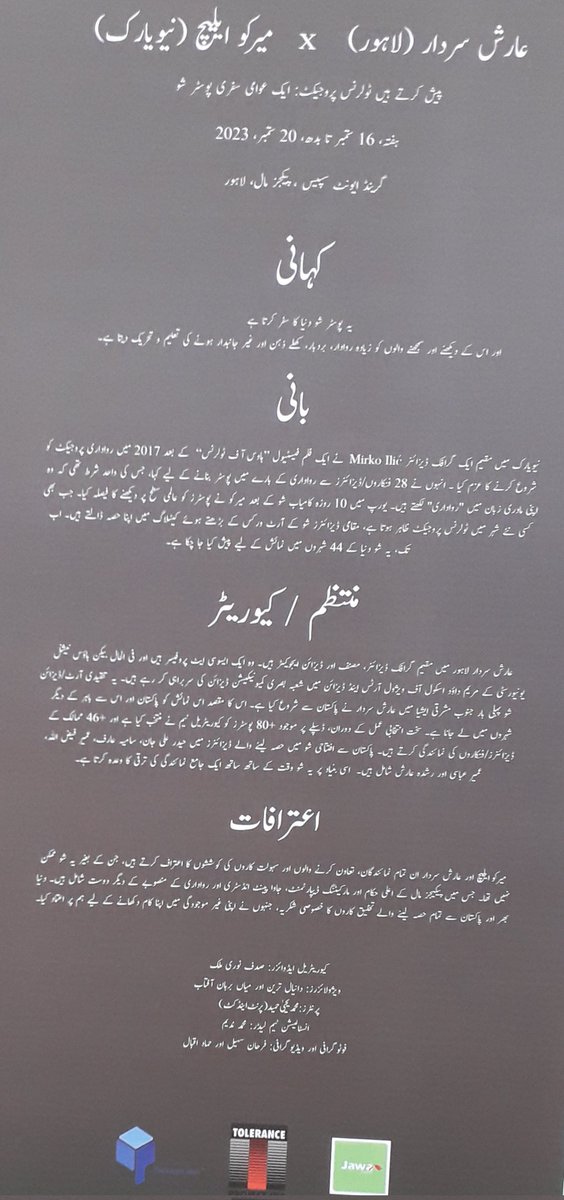 عارش سردار (لاہور) x میرکو ایلیچ (نیویارک)
پیش کرتے ہیں ٹولرنس پروجیکٹ: ایک عوامی سفری پوسٹر شو
ہفتہ، 16 ستمبر تا بدھ، 20 ستمبر، 2023
گرینڈ ایونٹ سپیس ، پیکجز مال، لاہور
کہانی
یہ پوسٹر شو دنیا کا سفر کرتا ہے
اور اس کے دیکھنے اور سمجھنے والوں کو زیادہ روادار، بردبار، کھلے ذہن اور غیر جانبدار ہونے کی تعلیم و تحریک دیتا ہے۔
بانی
نیویارک میں مقیم ایک گرافک ڈیزائنر Mirko Ilić نے ایک فلم فیسٹیول "ہاوس آف ٹولرنس" کے بعد 2017 میں رواداری پروجیکٹ کو
شروع کرنے کا عزم کیا ۔ انہوں نے 28 فنکاروں/ڈیزائنرز سے رواداری کے بارے میں پوسٹر بنانے کے لیے کہا، جس کی واحد شرط تھی کہ وہ
اپنی مادری زبان میں "رواداری" لکھتے ہیں۔ یورپ میں 10 روزہ کامیاب شو کے بعد میرکو نے پوسٹرز کو عالمی سطح پر دیکھنے کا فیصلہ کیا۔ جب بھی
کسی نئے شہر میں ٹولرنس پروجیکٹ ظاہر ہوتا ہے، مقامی ڈیزائنرز شو کے آرٹ ورکس کے بڑھتے ہوئے کیٹلاگ میں اپنا حصہ ڈالتے ہیں۔ اب
تک، یہ شو دنیا کے 44 شہروں میں نمائش کے لیے پیش کیا جا چکا ہے۔
منتظم / کیوریٹر
عارش سردار لاہور میں مقیم گرافک ڈیزائنر، مصنف اور ڈیزائن ایجوکیٹر ہیں۔ وہ ایک ایسوسی ایٹ پروفیسر ہیں اور فی الحال بیکن ہاؤس نیشنل
یونیورسٹی کے مریم داؤد اسکول آف ویژول آرٹس اینڈ ڈیزائن میں شعبہ بصری کمیونیکیشن ڈیزائن کی سربراہی کر رہے ہیں۔ یہ تنقیدی آرٹ/ڈیزائن
شو پہلی بار جنوب مشرقی ایشیا میں عارش سردار نے پاکستان سے شروع کیا ہے۔ اس کا مقصد اس نمائش کو پاکستان اور اس سے باہر کے دیگر
شہروں میں لے جانا ہے۔ سخت انتخابی عمل کے دوران، ڈسپلے پر موجود +80 پوسٹرز کو کیوریٹریل ٹیم نے منتخب کیا ہے اور +46 ممالک کے
ڈیزائنرز/فنکاروں کی نمائندگی کرتے ہیں۔ پاکستان سے افتتاحی شو میں حصہ لینے والے ڈیزائنرز میں حیدر علی جان، سامیہ عارف، عمیر فیض اللہ،
عمیر عباسی اور رشدہ عارش شامل ہیں۔ اسی بنیاد پر یہ شو وقت کے ساتھ ساتھ ایک جامع نمائندگی کی ترقی کا وعدہ کرتا ہے۔
اعترافات
میرکو ایلیچ اور عارش سردار ان تمام نمائندگان، تعاون کرنے والوں اور سہولت کاروں کی کوششوں کا اعتراف کرتے ہیں، جن کے بغیر یہ شو ممکن
نہیں تھا۔ جس میں پیکیجز مال کے اعلی حکام اور مارکیٹنگ ڈیپارٹمنٹ، جاوا پینٹ انڈسٹری اور رواداری کے منصوبے کے دیگر دوست شامل ہیں۔ دنیا
بھر اور پاکستان سے تمام حصہ لینے والے تخلیق کاروں کا خصوصی شکریہ، جنہوں نے اپنی غیر موجودگی میں اپنا کام دکھانے کے لیے ہم پر اعتماد کیا۔
کیوریٹریل ایڈوائزر: صدف نوری ملک
ویژولائزرز: دانیال ترین اور میاں برہان آفتاب
پرنٹرز: محمد یحییٰ حمید (پرنٹ اینڈ کٹ)
انسٹالیشن ٹیم لیڈر: محمد ندیم
فوٹوگرافی اور ویڈیوگرافی: فرحان سہیل اور حماد اقبال
TOLERANCE
Jawa